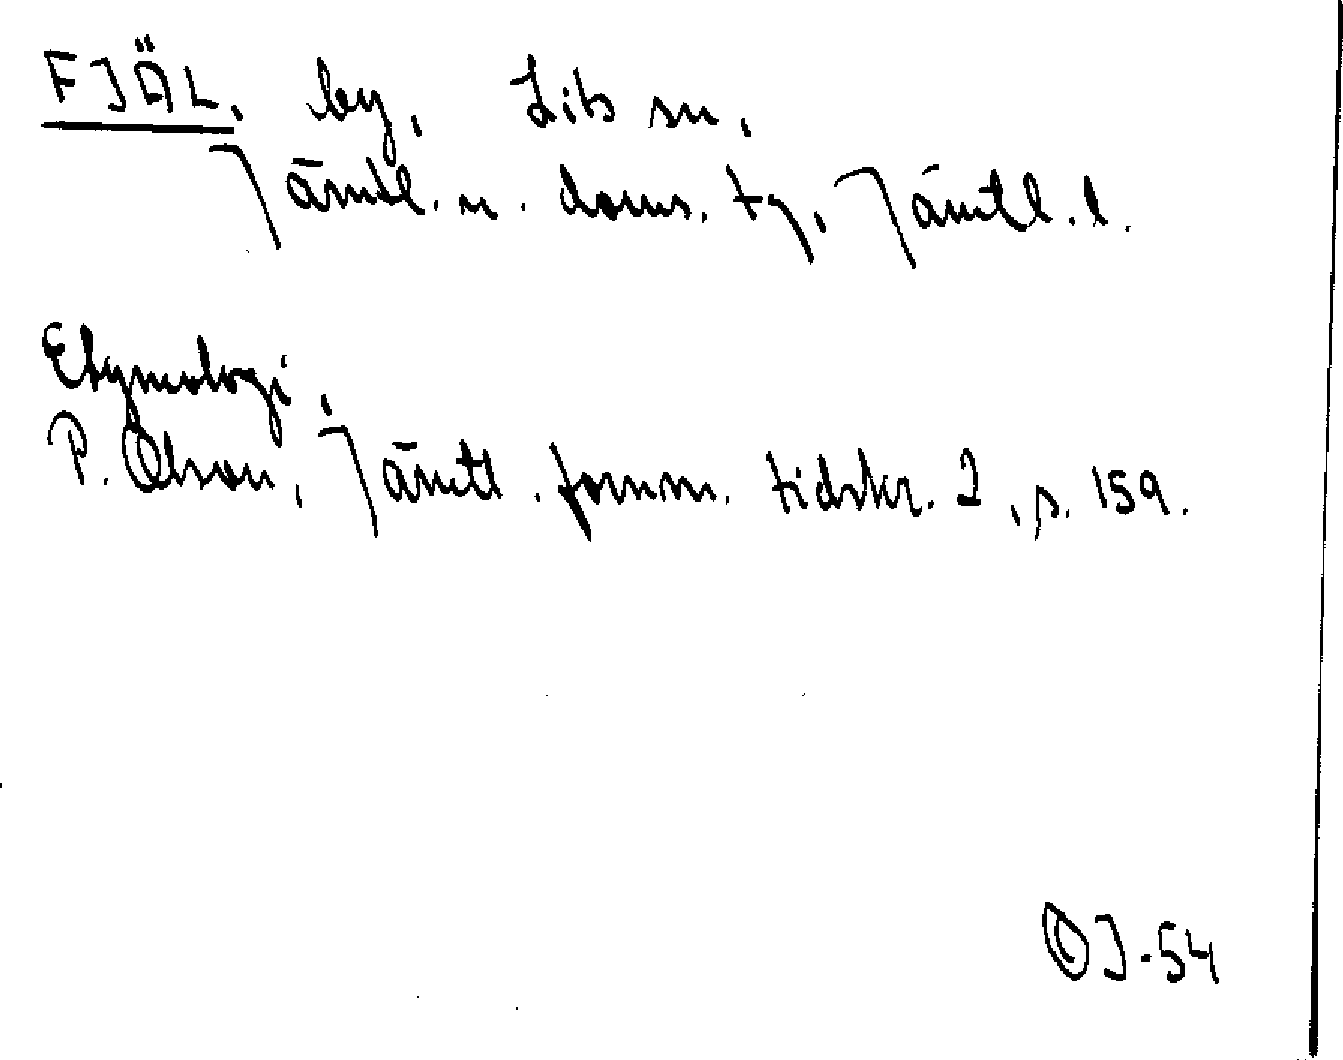 FJÄL, by, Lits sn,
Jämtl. n. doms. tg, Jämtl. l.
Etymologi,
P. Olsson, Jämtl. fornm. tidskr. 2, s. 159.
OJ-54